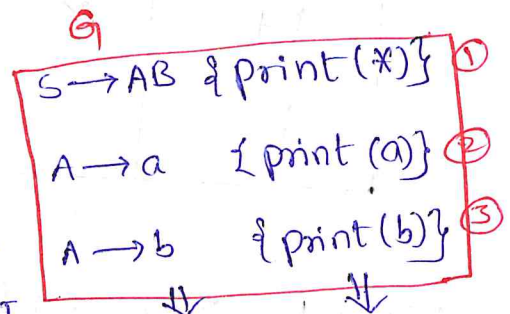 G
S → AB {print(*)} ①
A → a {print(a)} ②
A → b {print(b)} ③
⇓ ⇓